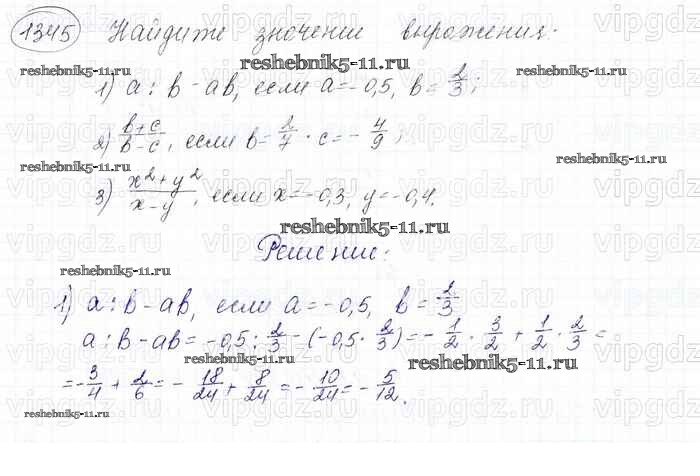 1345 Найдите значение выражения:
1) a : b - ab, если a = -0,5, b = 2/3;
2) (b+c)/(b-c), если b = 2/7, c = -4/9;
3) (x² + y²)/(x - y), если x = -0,3, y = -0,4.
Решение:
1) a : b - ab, если a = -0,5, b = 2/3
a : b - ab = -0,5 : 2/3 - (-0,5 · 2/3) = -1/2 · 3/2 + 1/2 · 2/3 =
= -3/4 + 2/6 = -18/24 + 8/24 = -10/24 = -5/12.
reshebnik5-11.ru
reshebnik5-11.ru
reshebnik5-11.ru
reshebnik5-11.ru
reshebnik5-11.ru
reshebnik5-11.ru
reshebnik5-11.ru
reshebnik5-11.ru
reshebnik5-11.ru
vipgdz.ru